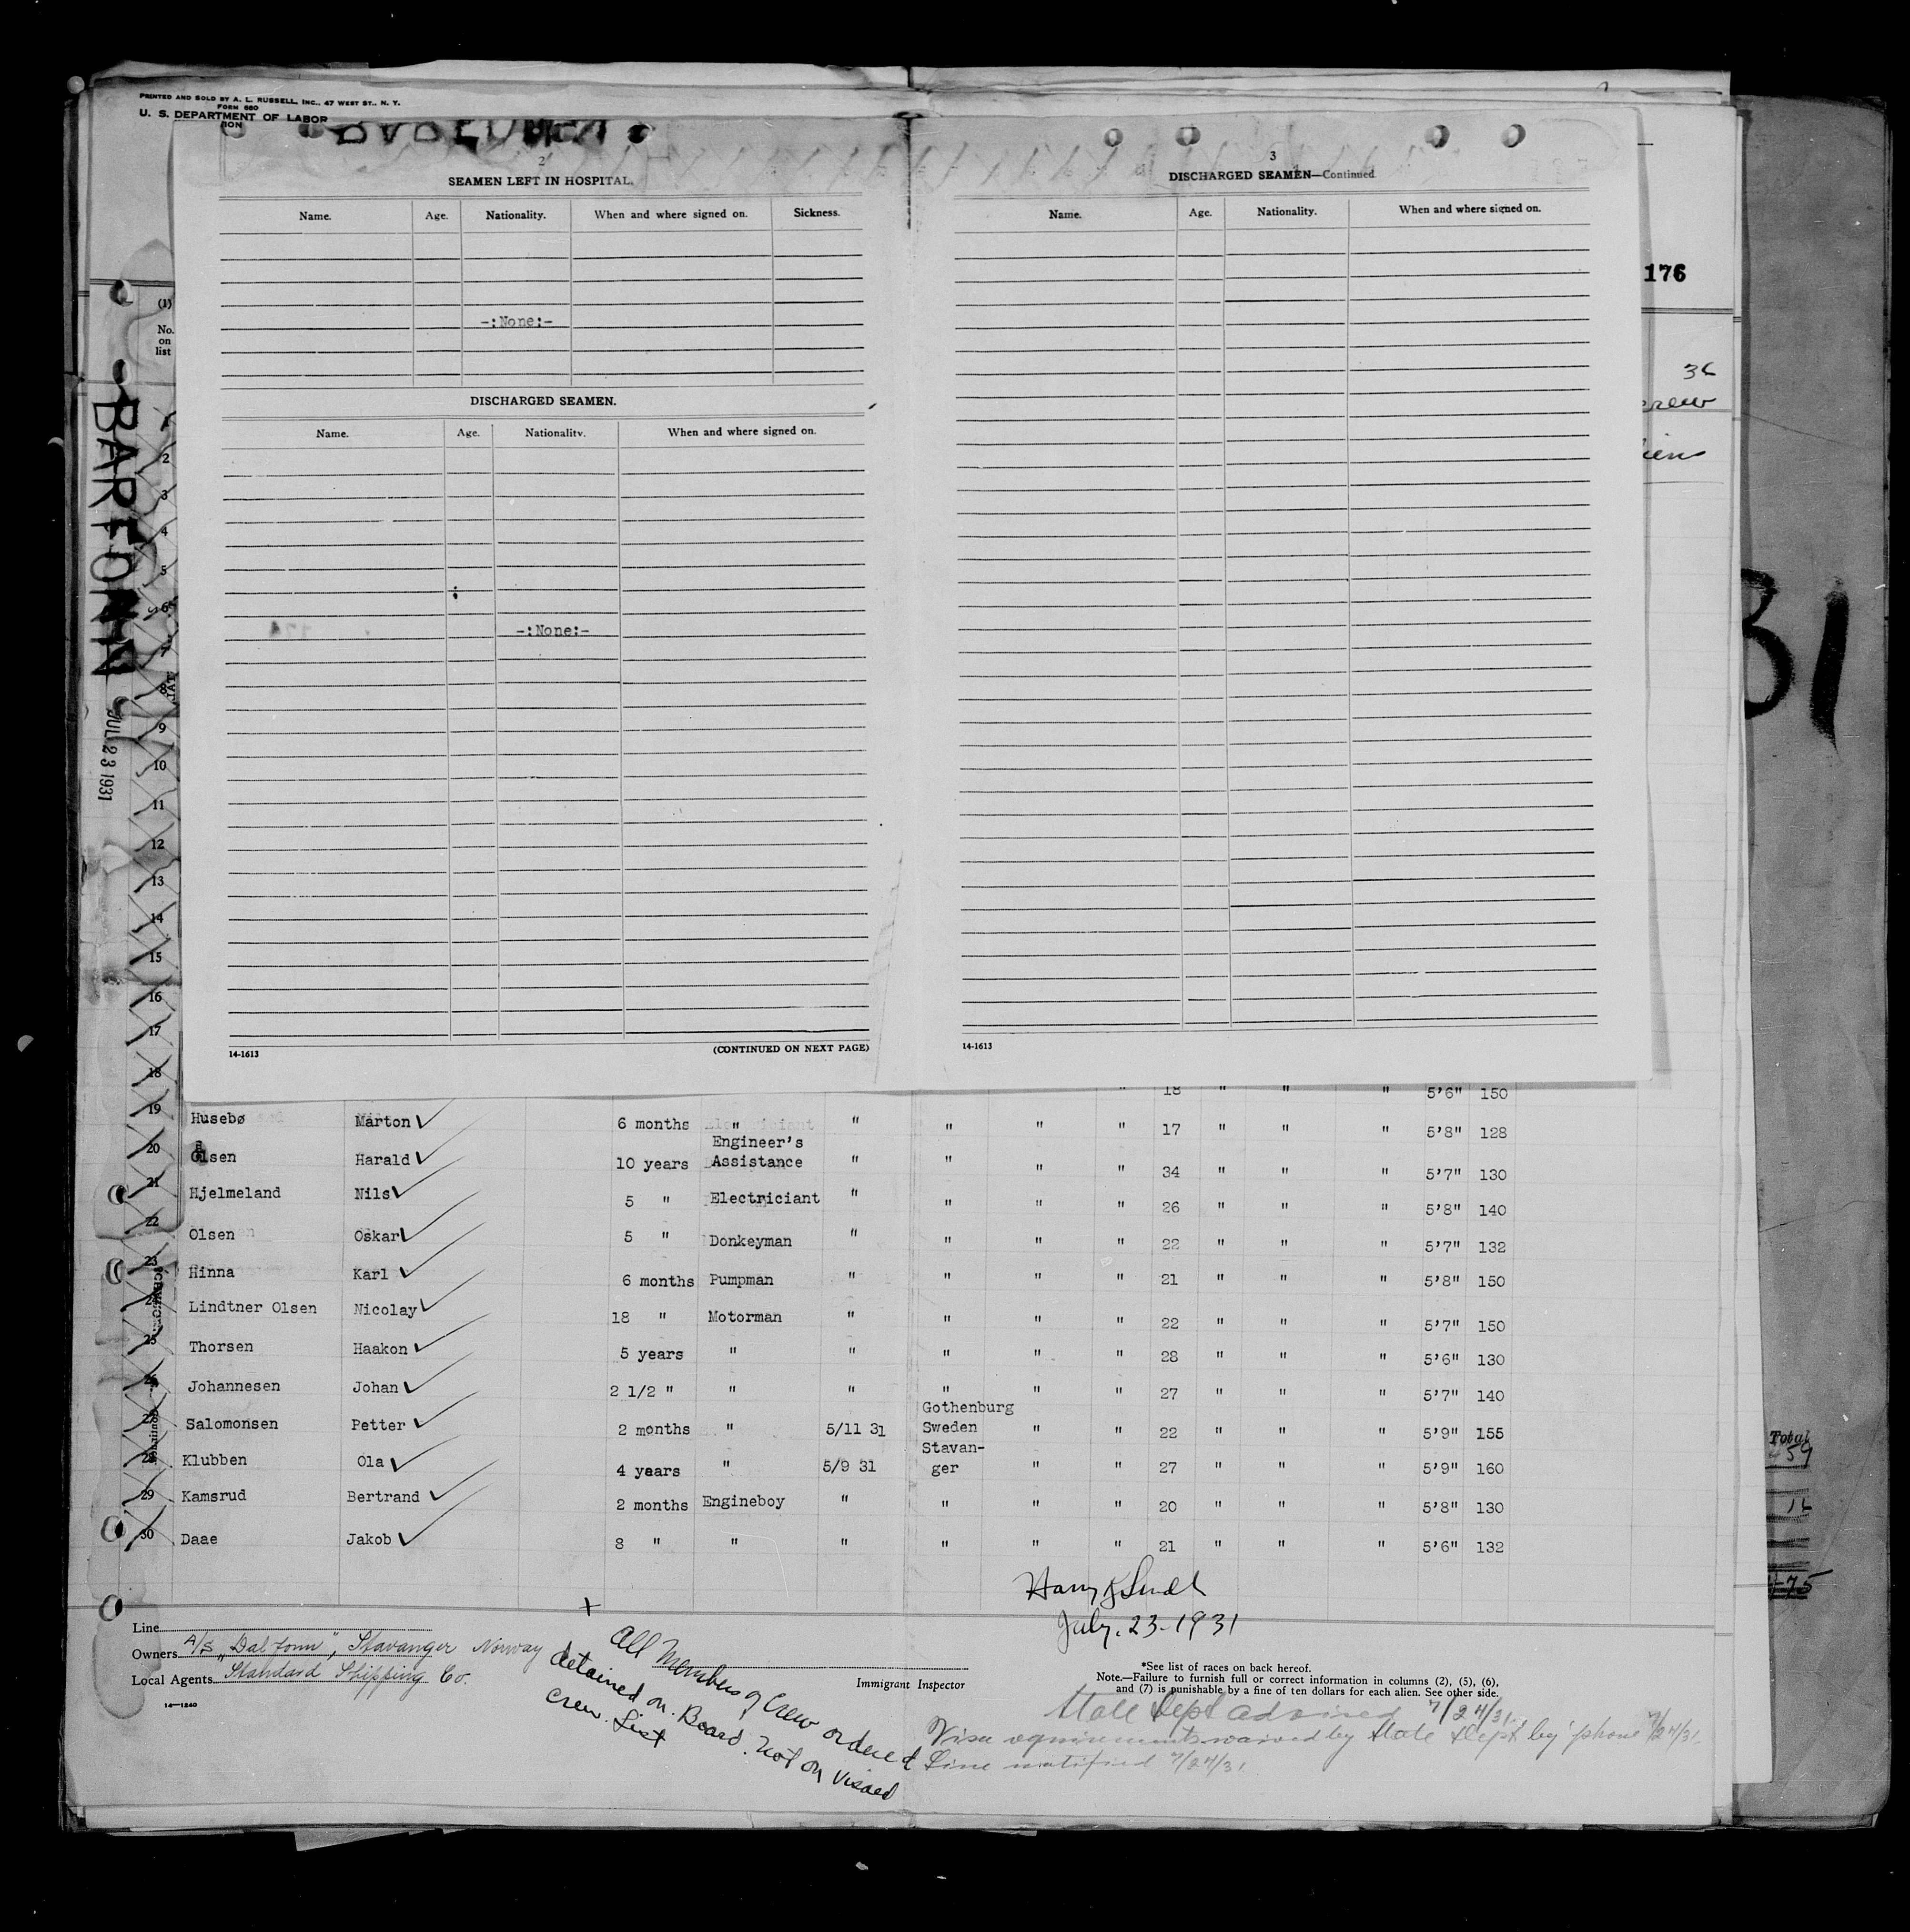 PRINTED AND SOLD BY A. L. RUSSELL, INC., 47 WEST ST., N. Y.
FORM 680
U. S. DEPARTMENT OF LABOR
2
SEAMEN LEFT IN HOSPITAL.
Name. Age. Nationality. When and where signed on. Sickness.
-:None:-
DISCHARGED SEAMEN.
Name. Age. Nationality. When and where signed on.
-:None:-
14-1613 (CONTINUED ON NEXT PAGE)
3
DISCHARGED SEAMEN—Continued
Name. Age. Nationality. When and where signed on.
14-1613
176
36
crew
31
Total
59
75
BARFONN
JUL 23 1931
(1)
No.
on
list
2
3
4
5
6
7
8
9
10
11
12
13
14
15
16
17
18
18 " " " 5'6" 150
19 Husebø Marton 6 months " " " " " 17 " " " 5'8" 128
20 Olsen Harald 10 years Engineer's Assistance " " " " 34 " " " 5'7" 130
21 Hjelmeland Nils 5 " Electriciant " " " " 26 " " " 5'8" 140
22 Olsen Oskar 5 " Donkeyman " " " " 22 " " " 5'7" 132
23 Hinna Karl 6 months Pumpman " " " " 21 " " " 5'8" 150
24 Lindtner Olsen Nicolay 18 " Motorman " " " " 22 " " " 5'7" 150
25 Thorsen Haakon 5 years " " " " " 28 " " " 5'6" 130
26 Johannesen Johan 2 1/2 " " " " " " 27 " " " 5'7" 140
27 Salomonsen Petter 2 months " 5/11 31 Gothenburg Sweden " " 22 " " " 5'9" 155
28 Klubben Ola 4 years " 5/9 31 Stavan-ger " " 27 " " " 5'9" 160
29 Kamsrud Bertrand 2 months Engineboy " " " " 20 " " " 5'8" 130
30 Daae Jakob 8 " " " " " " 21 " " " 5'6" 132
July. 23-1931
Line
Owners A/S "Dalfonn", Stavanger Norway
Local Agents Standard Shipping Co.
14—1240
+
All Members of Crew ordered
detained on Board. Not on visaed
Crew List
Immigrant Inspector
*See list of races on back hereof.
Note.—Failure to furnish full or correct information in columns (2), (5), (6),
and (7) is punishable by a fine of ten dollars for each alien. See other side.
State Dept advised 7/24/31.
Visa requirements waived by State Dept by 'phone 7/24/31.
Line notified 7/24/31.